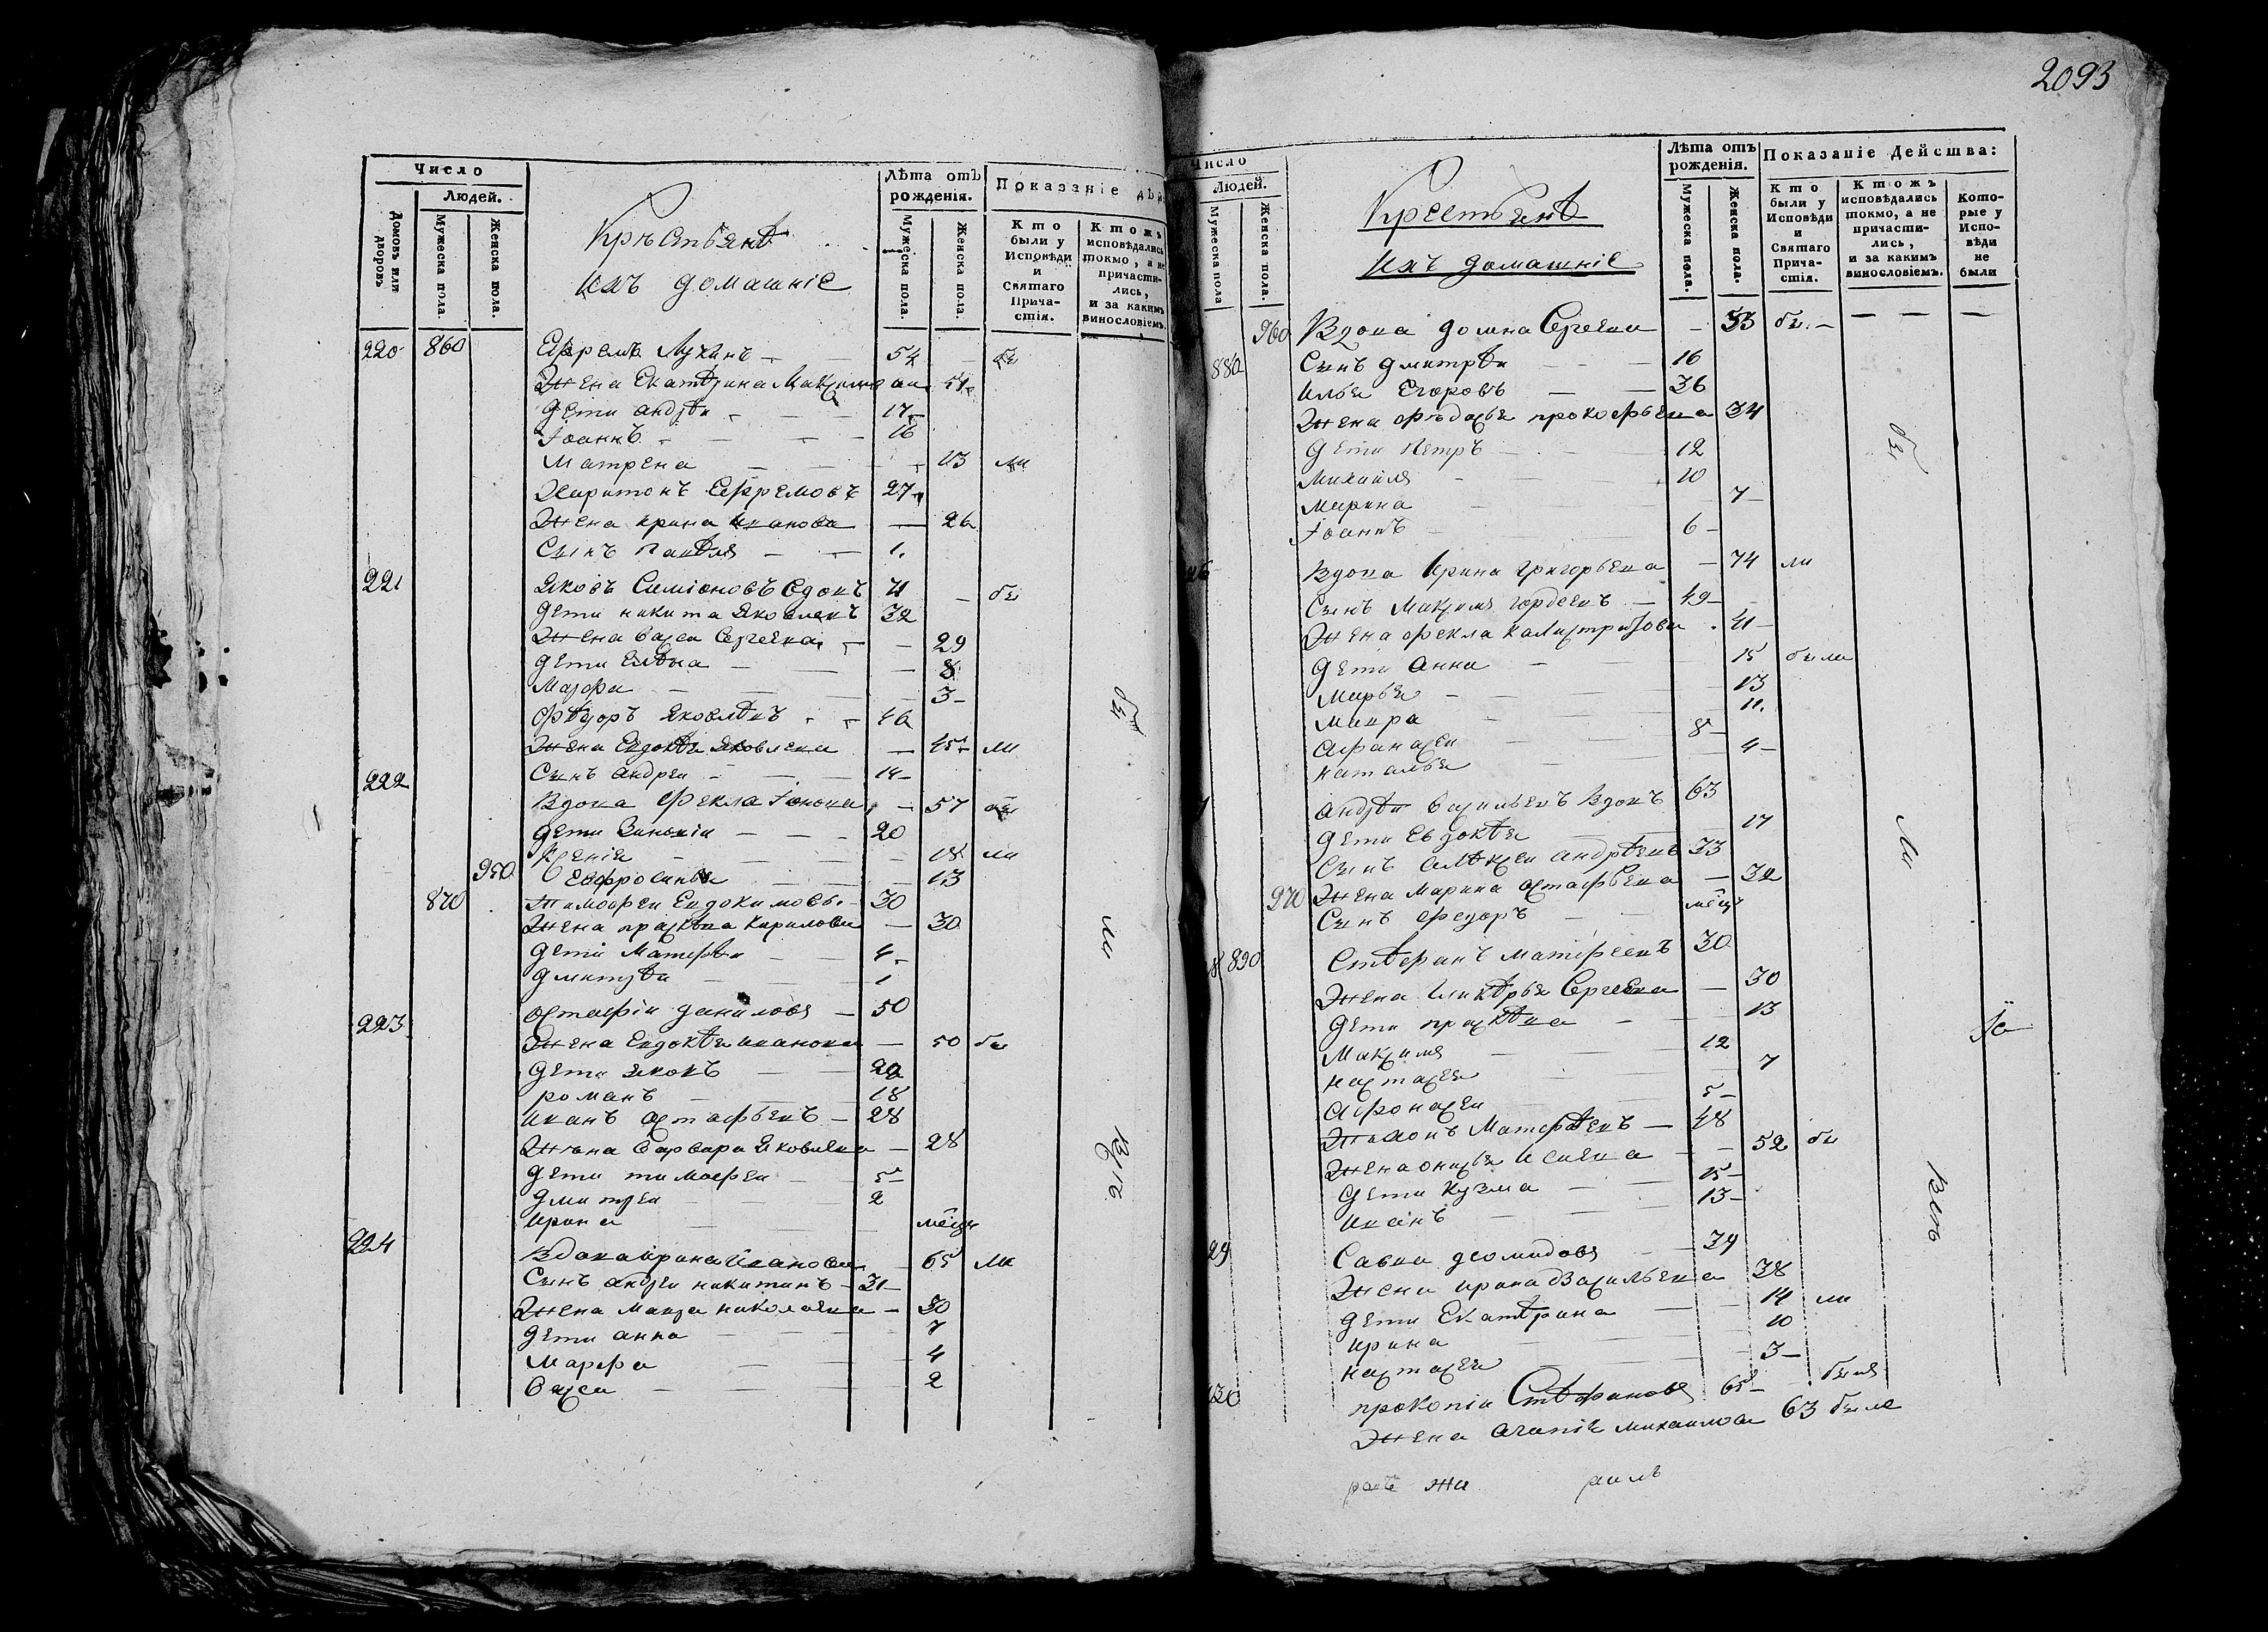 2093
Число
Людей.
Домовъ или дворовъ
Мужеска пола.
Женска пола.
Крѣстьянѣ
ихъ домашніе
Лѣта отъ рожденія.
Мужеска пола.
Женска пола.
Показаніе дѣй
Кто были у Исповѣди и Святаго Причастія.
Ктожъ исповѣдались токмо, а не причастились, и за какимъ винословіемъ.
220 860 Ефремъ Лукинъ 54 бы
Жена Екатѣрина Максимова 51
Дети Андрѣи 17
Іоаннъ 16
Матрена 13 ли
Харитонъ Ефремовъ 27
Жена Ирина Иванова 26
Сынъ Павѣлъ 1.
221 Яковъ Симіоновъ вдовъ 71 бы
Дети Никита Яковлевъ 32
Жена Васса Сергеева 29
Дети Елѣна 8
Марфа 3
Фѣдоръ Яковлѣвъ 46
Жена Евдокѣя Яковлева 45 ли
Сынъ Андреи 14
222 Вдова Фекла 57 бы
Дети Зиновіи 20
Ксенія 18 ли
950 Евфросинья 13
870 Тимофеи Евдокимовъ 30
Жена Прасковья Кирилова 30
Дети Матфѣи 4
Дмитрѣи 1
223 Остафіи Даниловъ 50
Жена Евдокѣя Иванова 50 бы
Дети Яковъ 22
Романъ 18
Иванъ Остафьевъ 28
Жена Варвара Яковлева 28
Дети Тимофеи 5
Дмитреи 2
Ирина мѣсц
224 Вдова Ирина Иванова 65 ли
Сынъ Андреи Никитинъ 31
Жена Мавра Николаева 30
Дети Анна 7
Марфа 4
Васса 2
бы
ли
Число
Людей.
Мужеска пола
Женска пола.
Крестьянѣ
ихъ домашніе
Лѣта отъ рожденія.
Мужеска пола.
Женска пола.
Показаніе Действа:
Кто были у Исповѣди и Святаго Причастія.
Ктожъ исповѣдались токмо, а не причастились, и за какимъ винословіемъ.
Которые у Исповѣди не были
960 Вдова Домна Сергеева 53 бы
880 Сынъ Дмитрѣи 16
Илья Егоровъ 36
Жена Фѣдосья Прокофьева 34
Дети Петръ 12
Михаилъ 10
Марина 7
Іоаннъ 6
Вдова Ирина Григорьева 74 ли
Сынъ Максимъ Гордеевъ 49
Жена Фекла Калистратова 41
Дети Анна 15 были
Марья 13
Мавра 11.
Афанасеи 8
Наталья 4
Андрѣи Васильевъ вдовъ 63
Дети Евдокѣя 17
Сынъ Алѣксеи Андрѣевъ 33
970 Жена Марина Остафьева 32
Сынъ Федоръ мѣсц
890 Стѣфанъ Матфеевъ 30
Жена Сергеева 30
Дети Прасковья 13
Максимъ 12
Настасья 7
Афонасеи 5
Матфѣевъ 48
Жена Онисья 52 бы
Дети Кузма 15
Иванъ 13
29 Савва Деомидовъ 39
Жена Ирина Васильева 38
Дети Екатѣрина 14 ли
Ирина 10
Настасья 3
130 Прокопіи Стѣфановъ 65 былъ
Жена Агапія Михаилова 63 была
бы
ли